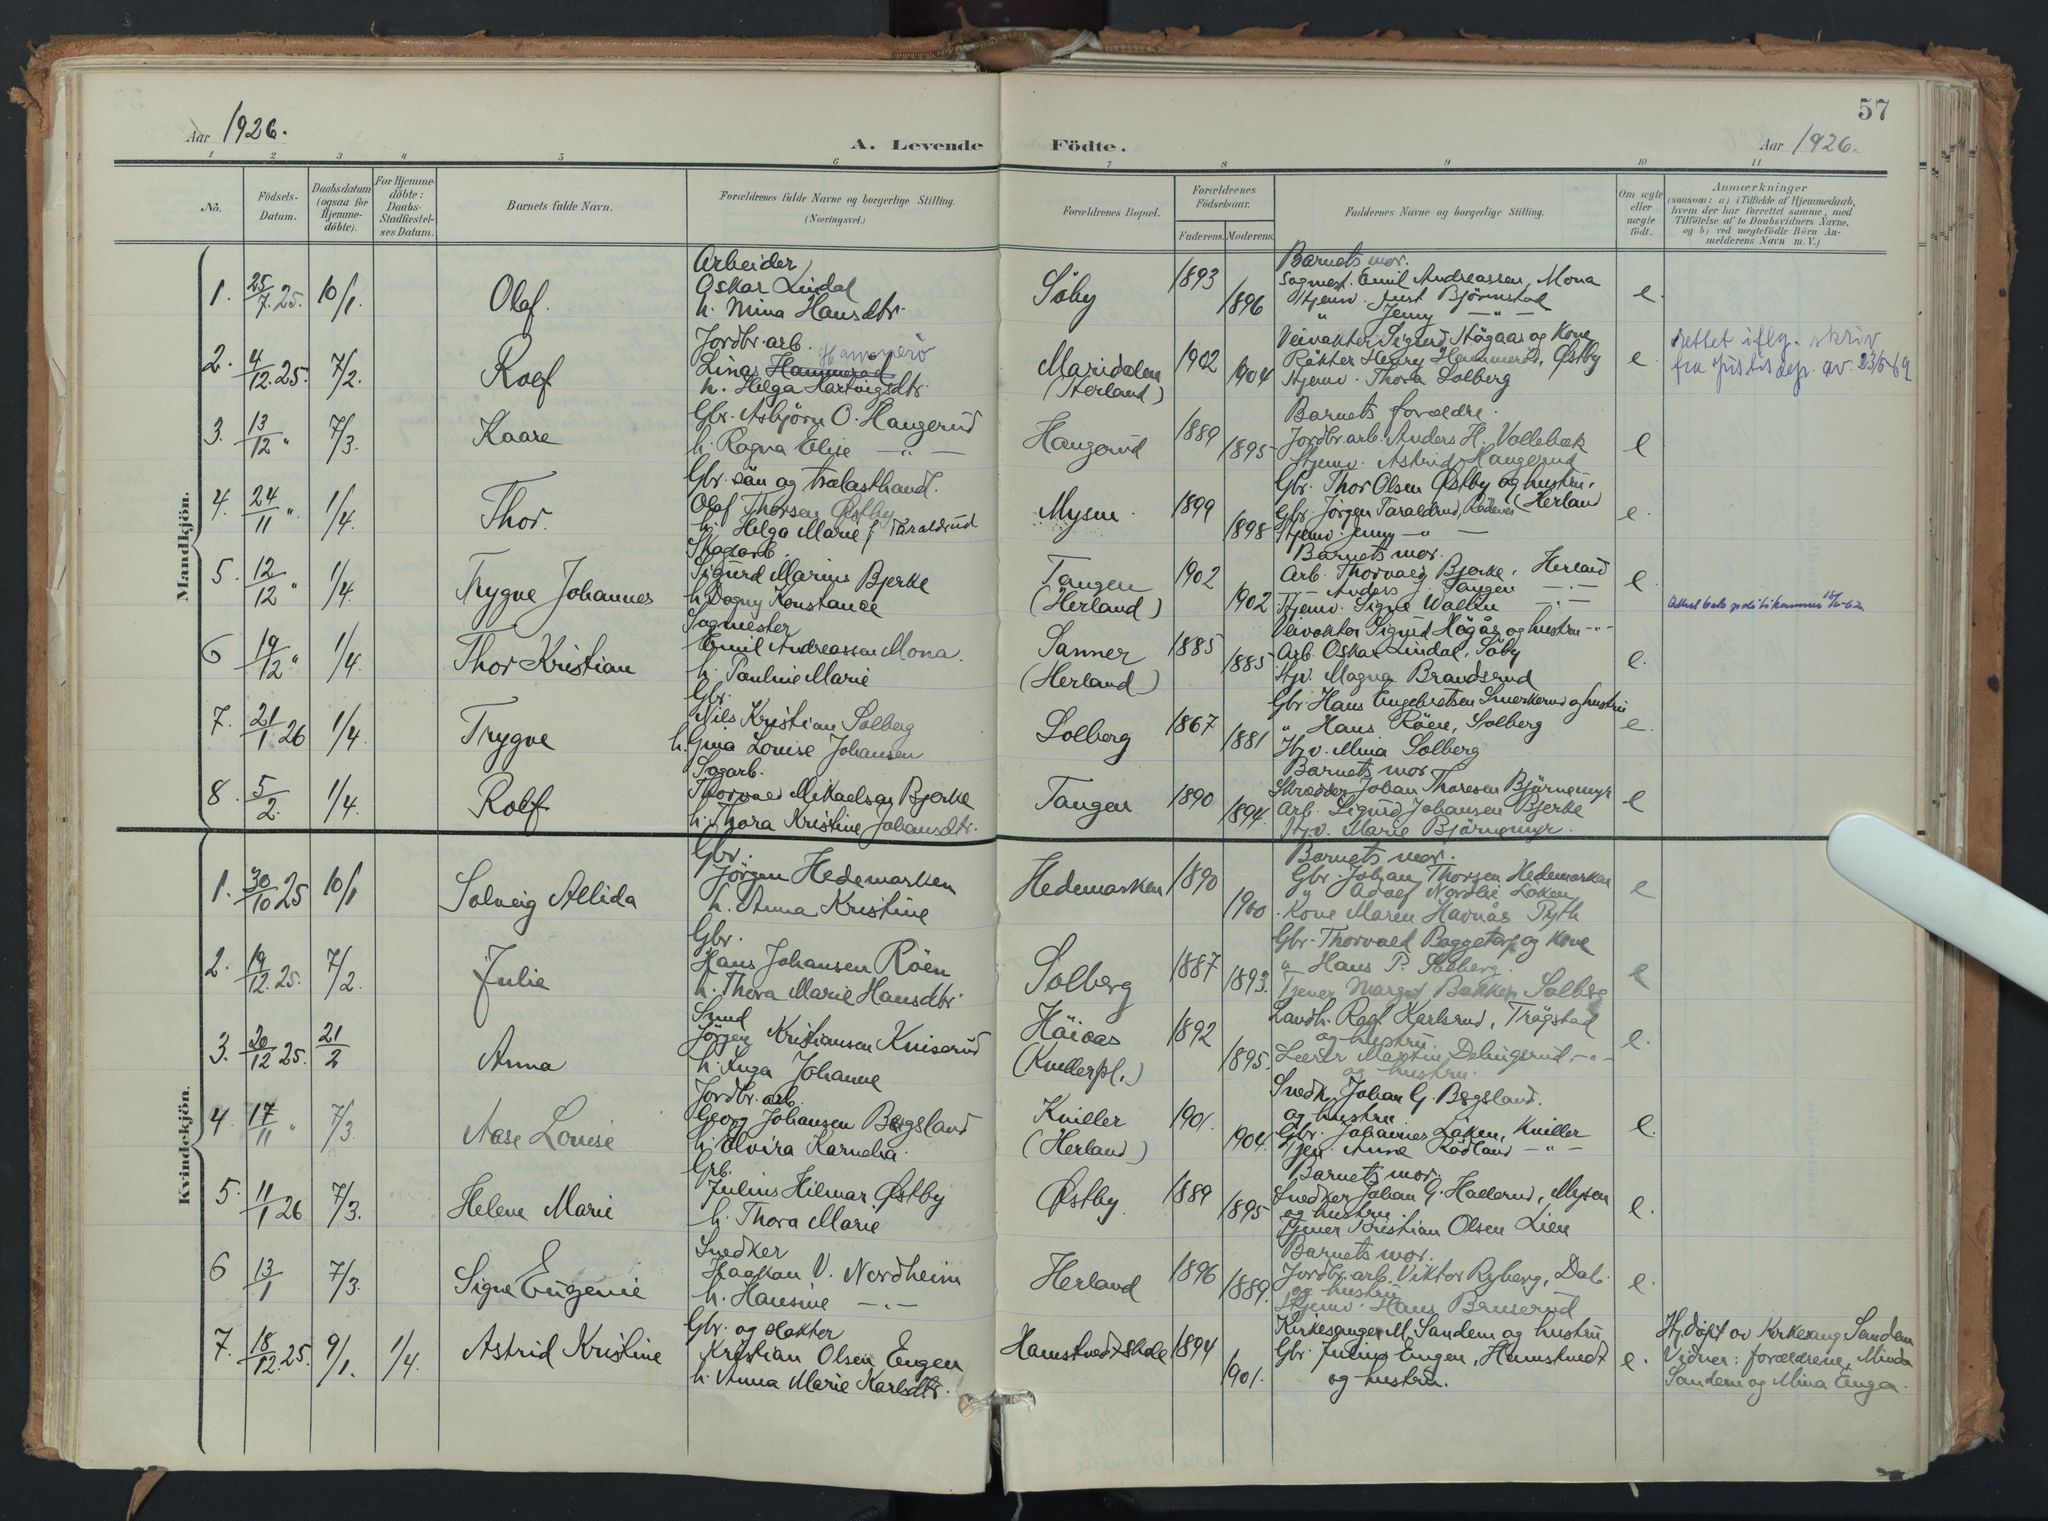 57
Aar 1926.
A. Levende Födte.
Aar 1926.
1 2 3 4 5 6 7 8 9 10 11
No.
Födsels-Datum.
Daabsdatum (ogsaa for Hjemme-döbte).
For Hjemme-döbte: Daabs-Stadfestel-ses Datum.
Barnets fulde Navn.
Forældrenes fulde Navne og borgerlige Stilling. (Næringsvei.)
Forældrenes Bopæl.
Forældrenes Födselsaar.
Faderens. Moderens.
Faddernes Navne og borgerlige Stilling.
Om ægte eller uægte födt.
Anmærkninger
(saasom: a) i Tilfælde af Hjemmedaab, hvem der har forrettet samme, med Tilföielse af to Daabsvidners Navne, og b) ved uegtefödte Börn An-melderens Navn m. V.)
Mandkjön.
1. 25/7.25. 10/1. Olaf.
Arbeider
Oskar Lindal
h. Mina Hansdtr.
Söby 1893 1896
Barnets mor.
Sagmest. Emil Andreassen, Mona
Hjemv. Just Björnstad
" Jenny — " —
e.
2. 4/12.25. 7/2. Rolf
Jordbr. arb.
Linas Hammerad Hammerö
h. Helga Hartvigsdtr.
Maridalen
(Herland)
1902 1904
Veivokter Sigurd Högaas og Kone
Røkter Henry Hammeröd, Østby
Hjemv. Thora Solberg
e.
Rettet iflg. skriv
fra justisdep. av. 23/5-69
3. 13/12 " 7/3. Kaare
Gbr. Asbjörn O. Haugerud
h. Ragna Elise — " —
Haugerud 1889 1895
Barnets forældre.
Jordbr. arb. Anders H. Vollebæk
Hjemv. Astrid Haugerud
e
4. 24/11 " 1/4. Thor.
Gbr. sön og trælasthandl.
Olaf Thorsen Østby
h. Helga Marie f. Taraldrud
Mysen. 1899 1898
Gbr. Thor Olsen Østby og hustru,
(Herland
Gbr. Jörgen Taraldrud, Rödenes
Hjemv. Jenny — " —
e.
5. 12/12 " 1/4. Trygve Johannes
Skogarb.
Sigurd Marius Bjerke
h. Dagny Konstance
Tangen
(Herland)
1902 1902
Barnets mor.
Arb. Thorvald Bjerke, Herland
— Anders J. Tangen — . —
Hjemv. Signe Wallin — . —
e.
6 19/12 " 1/4. Thor Kristian
Sagmester
Emil Andreassen Mona.
h. Pauline Marie
Sanner
(Herland)
1885 1885
Veivokter Sigurd Högås og hustru - " -
Arb. Oskar Lindal, Söby
Hjv. Magna Brandsrud
e.
7. 21/1 26 1/4. Trygve
Gbr.
Nils Kristian Solberg
h. Gina Lovise Johansen
Solberg 1867 1881
Gbr. Hans Engebretsen Smerkerud og hustru
" Hans Röen, Solberg
Hjv. Mina Solberg
e.
8. 5/2. 1/4. Rolf
Sagarb.
Thorvald Mikaelsen Bjerke
h. Thora Kristine Johansdtr.
Tangen 1890 1894
Barnets mor.
Skrædder Johan Thoresen Björnemyr
Arb. Sigurd Johansen Bjerke
Hjv. Marie Björnemyr.
e
Kvindekjön.
1. 30/10 25 10/1 Solveig Allida
Gbr.
Jörgen Hedemarken
h. Anna Kristine
Hedemarken 1890 1900
Barnets mor.
Gbr. Johan Thorsen Hedemarken
" Adolf Nordlie Löken
Kone Maren Havnås Pyth
e
2. 19/12.25. 7/2. Julie
Gbr.
Hans Johansen Röen
h. Thora Marie Hansdtr.
Solberg 1887 1893.
Gbr. Thorvald Baggetorp og Kone
" Hans P. Solberg.
Tjener Margit Bakken Solberg
e
3. 20/12 25. 21/2 Anna
Smed
Jörgen Kristiansen Kniserud
h. Inga Johanne
Häiaas
(Knillerpl.)
1892 1895.
Landh. Ragf. Karlsrud, Trögstad
og hustru.
Leerer Martin Delingsrud, - " -
og hustru.
e.
4. 17/11 " 7/3. Aase Lovise
Jordbr. arb.
Georg Johansen Bøgsland
h. Elvira Karnelia.
Kniller
(Herland)
1901. 1904.
Snedk. Johan G. Bøgsland.
og hustru
Gbr. Johannes Löken, Kniller
Tjen. Anne Rödland — " —
e.
5. 11/1 26 7/3. Helene Marie
Grb.
Julius Hilmar Østby
h. Thora Marie
Østby. 1889 1895
Barnets mor.
Snedker Johan G. Hallerud, Mysen
og hustru.
Tjener Kristian Olsen Lien
e.
6 13/1 7/3. Signe Eugenie
Snedker
Haakon V. Nordheim
h. Hansine — . —
Herland 1896 1889.
Barnets mor.
Jordbr. arb. Viktor Ryberg, Dal.
og hustru
Hjemv. Hans Bruserud
e.
7. 18/12.25. 9/1. 1/4. Astrid Kristine
Gbr. og Røkter
Kristian Olsen Engen
h. Anna Marie Karlsdtr.
Hamstvedt skole 1894 1901.
Kirkesanger M. Sandem og hustru,
Gbr. Julius Engen, Hamstvedt
og hustru.
e.
Hj.døpt av Kirkesang. Sandem
Vidner: forældrene, Minda
Sandem og Mina Engen.